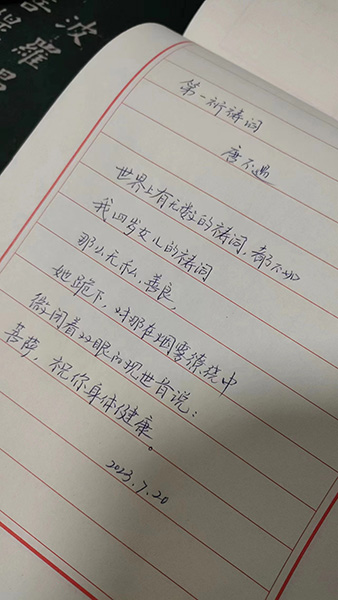 波羅
第一祈祷词
唐不遇
世界上有无数的祷词,都不如
我四岁女儿的祷词
那么无私,善良,
她跪下,对那在烟雾缭绕中
微闭着双眼的观世音说:
菩萨,祝你身体健康。
2023.7.20